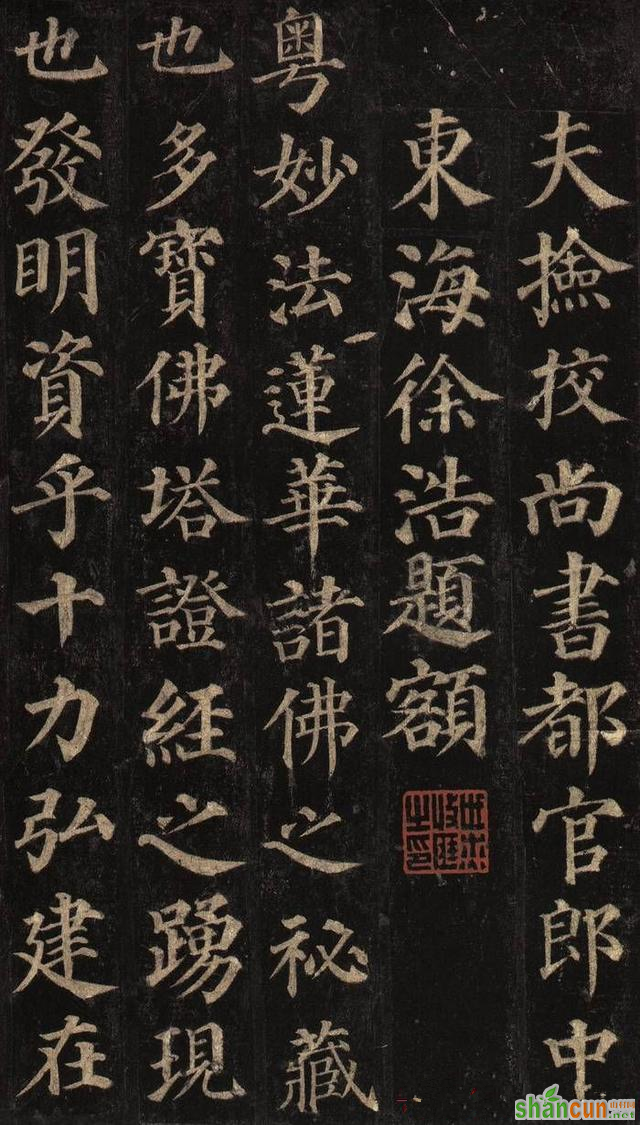 夫撿挍尚書都官郎中
東海徐浩題額
粤妙法蓮華諸佛之祕藏
也多寶佛塔證經之踴現
也發明資乎十力弘建在
shancun
.net